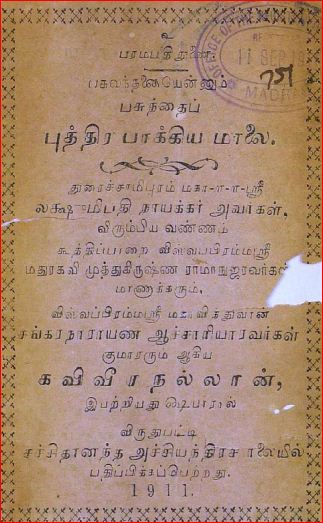 உ
பரமபதி துணை.
பசுவந்தனையென்னும்
பசுந்தைப்
புத்திர பாக்கிய மாலை.
11 SEP
751
MADRAS
துரைச்சாமிபுரம் மகா-ா-ா-ஸ்ரீ
லக்ஷுமிபதி நாயக்கர் அவர்கள்,
விரும்பிய வண்ணம்
கூத்திப்பாறை விஸ்வப்பிரம்மஸ்ரீ
மதுரகவி முத்துகிருஷ்ண ராமாநுஜரவர்கள்
மாணாக்கரும்,
விஸ்வப்பிரம்மஸ்ரீ மகாவித்துவான்
சங்கரநாராயண ஆச்சாரியாரவர்கள்
குமாரரும் ஆகிய
கவிவீரநல்லான்,
இயற்றியது
விருதுபட்டி
சச்சிதானந்த அச்சியந்திரசாலையில்
பதிப்பிக்கப்பெற்றது.
1911.